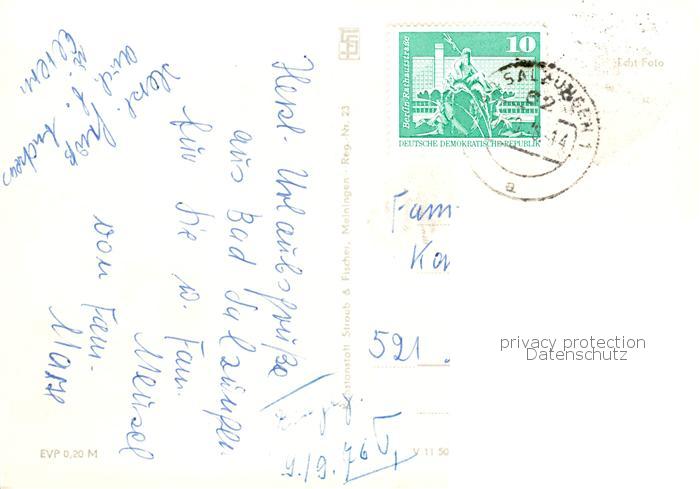 Herzl. Urlaubsgrüße
aus Bad Salzungen
für Sie u. Fam.
von Fam.
Herzl.
auch
Gruß
Andreas
9./9. 76
Kunstanstalt Straub & Fischer, Meiningen · Reg. Nr. 23
EVP 0,20 M
V 11 50
10
Berlin, Rathausstraße
DEUTSCHE DEMOKRATISCHE REPUBLIK
SALZUNGEN 1
62
a
Echt Foto
Fam.
Ka
521
privacy protection
Datenschutz